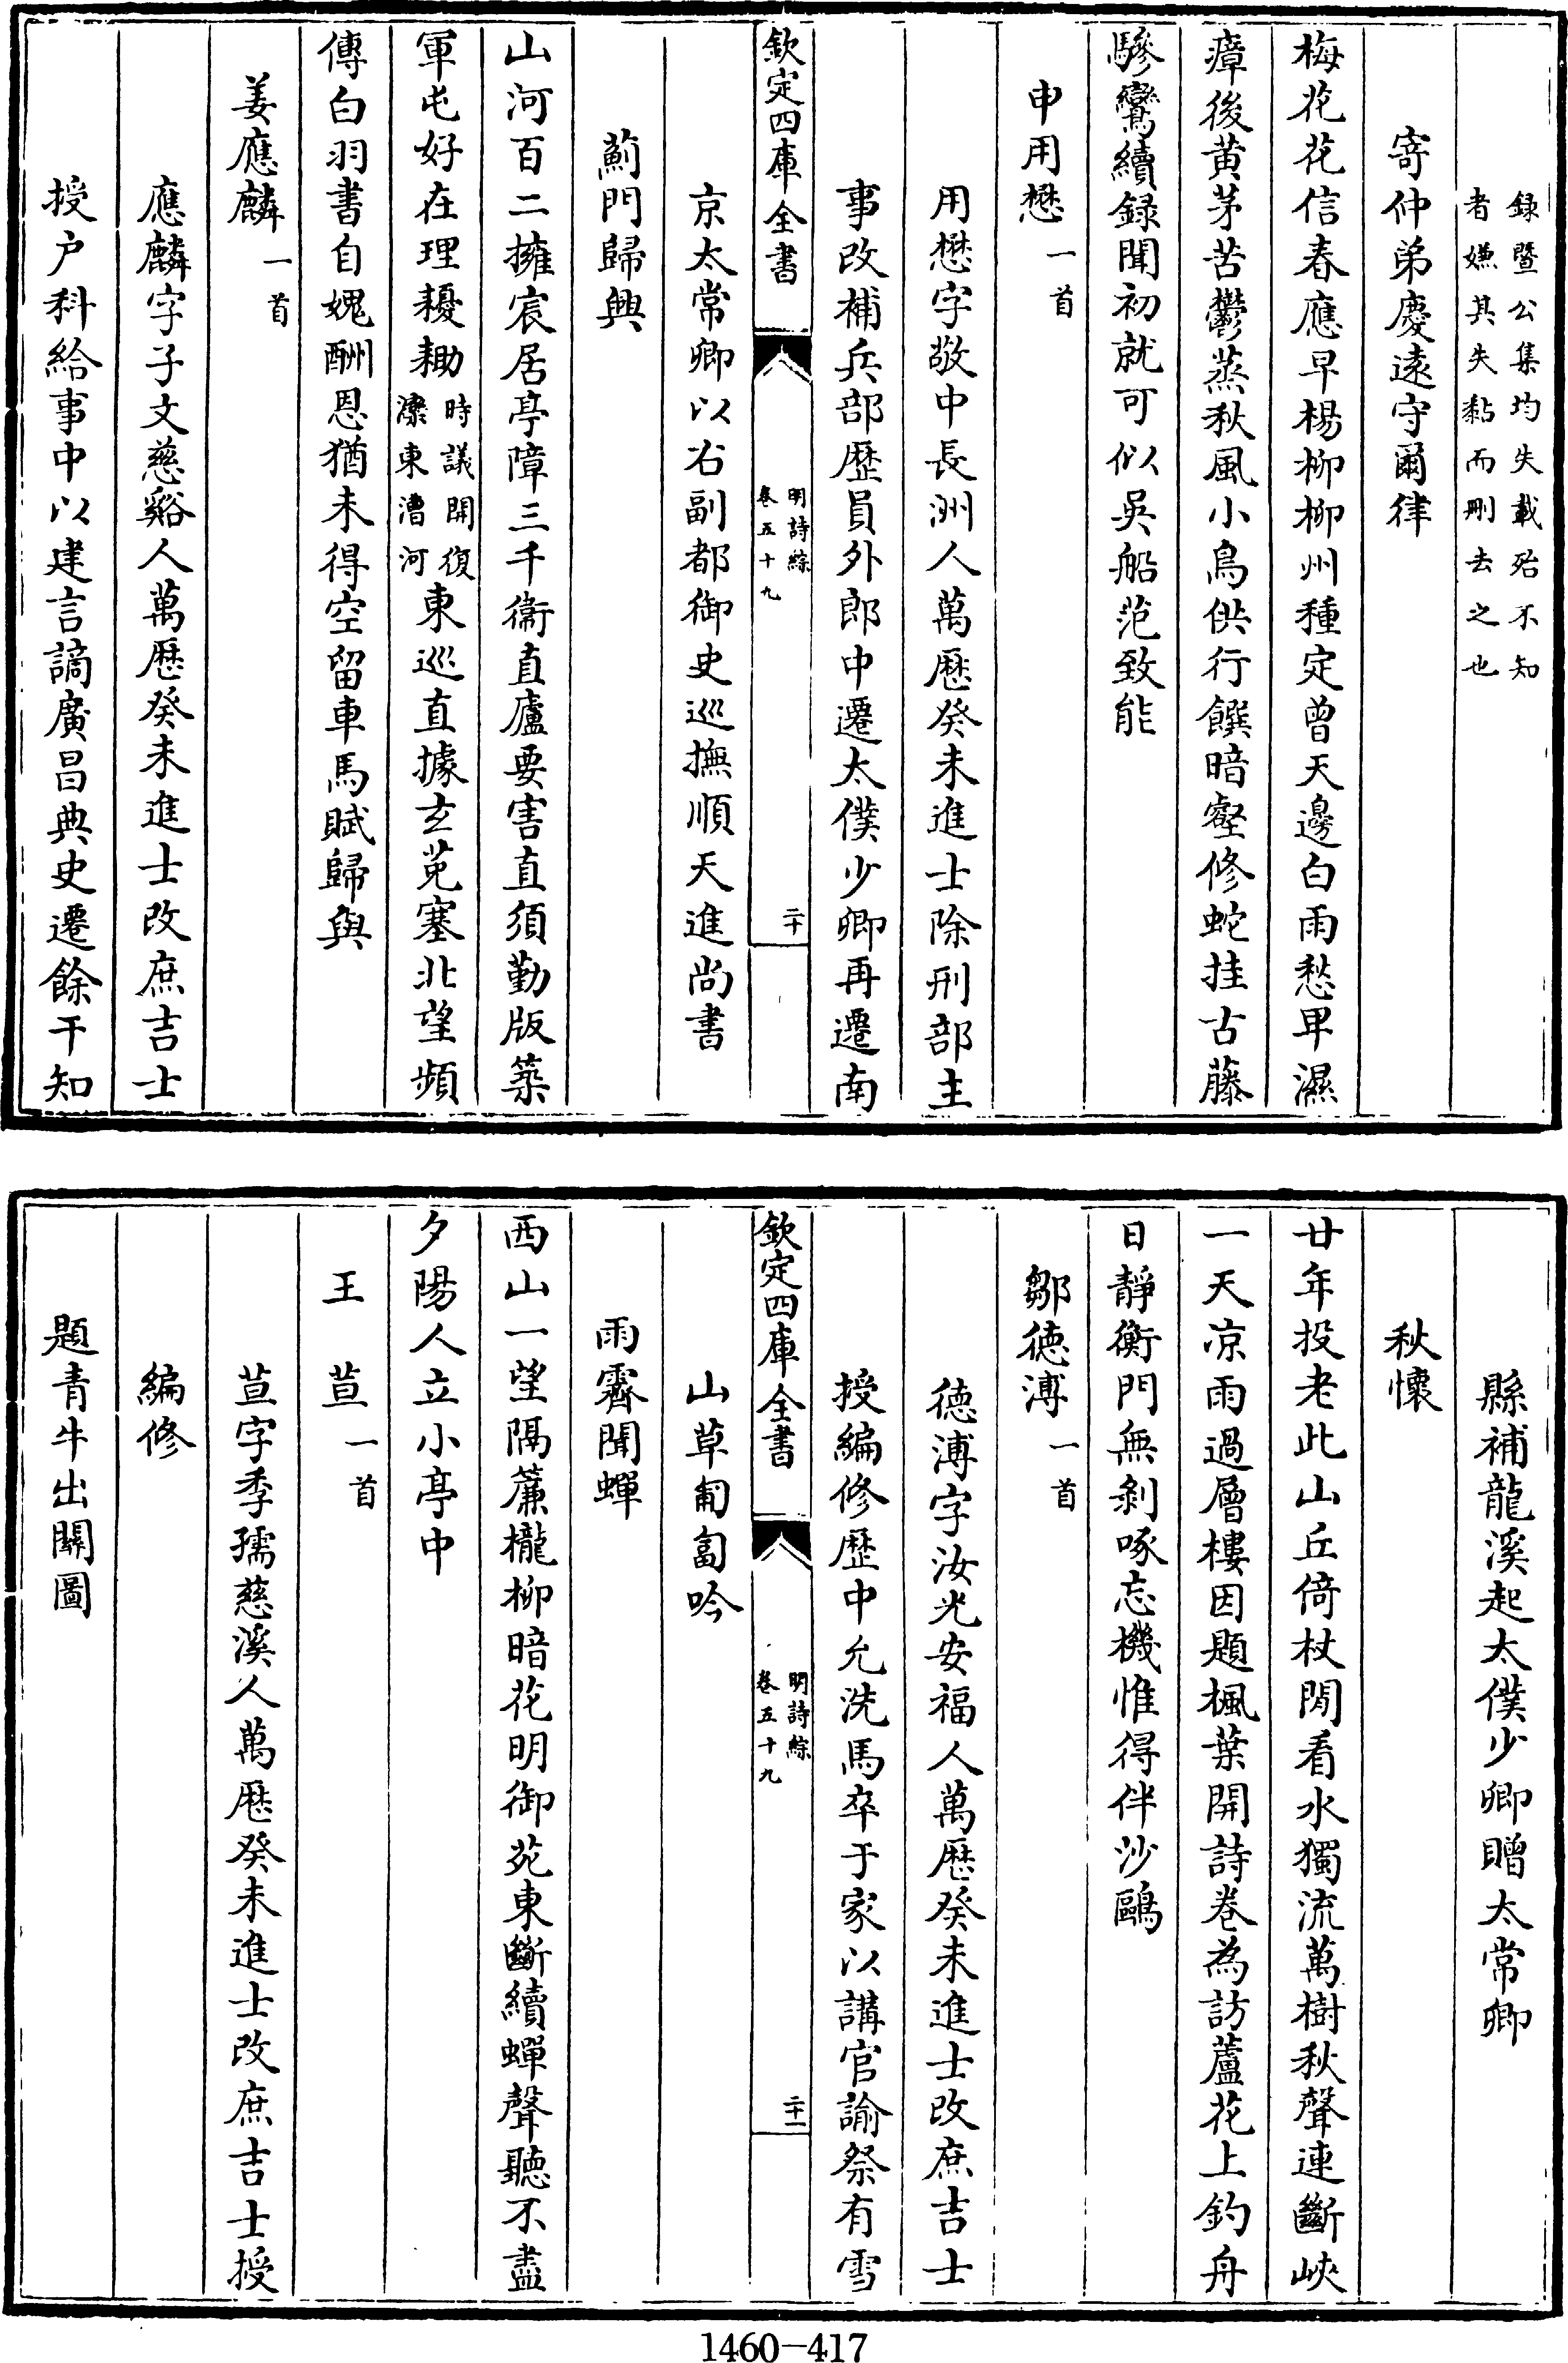 錄暨公集均失載殆不知
者嫌其失黏而刪去之也
寄仲弟慶遠守爾律
梅花花信春應早楊柳柳州種定曾天邊白雨愁畢濕
瘴後黃茅苦鬱蒸秋風小鳥供行饌暗壑修蛇挂古藤
驂鸞續録聞初就可似吳船范致能
申用懋一首
用懋字敬中長洲人萬厯癸未進士除刑部主
事改補兵部歴員外郎中遷太僕少卿再遷南
欽定四庫全書
明詩綜
卷五十九
二十
京太常卿以右副都御史巡撫順天進尚書
薊門歸興
山河百二擁宸居亭障三千衞直廬要害直須勤版築
軍屯好在理耰耡時議開復濼東漕河東巡直據玄菟塞北望頻
傳白羽書自媿酬恩猶未得空留車馬賦歸與
姜應麟一首
應麟字子文慈谿人萬厯癸未進士改庶吉士
授户科給事中以建言謫廣昌典史遷餘干知
縣補龍溪起太僕少卿贈太常卿
秋懷
廿年投老此山丘倚杖閒看水獨流萬樹秋聲連斷峽
一天凉雨過層樓因題楓葉開詩卷為訪蘆花上釣舟
日靜衡門無剝啄忘機惟得伴沙鷗
鄒德溥一首
德溥字汝光安福人萬厯癸未進士改庶吉士
授編修歴中允洗馬卒于家以講官諭祭有雪
欽定四庫全書
明詩綜
卷五十九
二十一
山草匍匐吟
雨霽聞蟬
西山一望隔簾櫳柳暗花明御苑東斷續蟬聲聽不盡
夕陽人立小亭中
王荁一首
荁字季孺慈溪人萬厯癸未進士改庶吉士授
編修
題青牛出關圖
1460-417